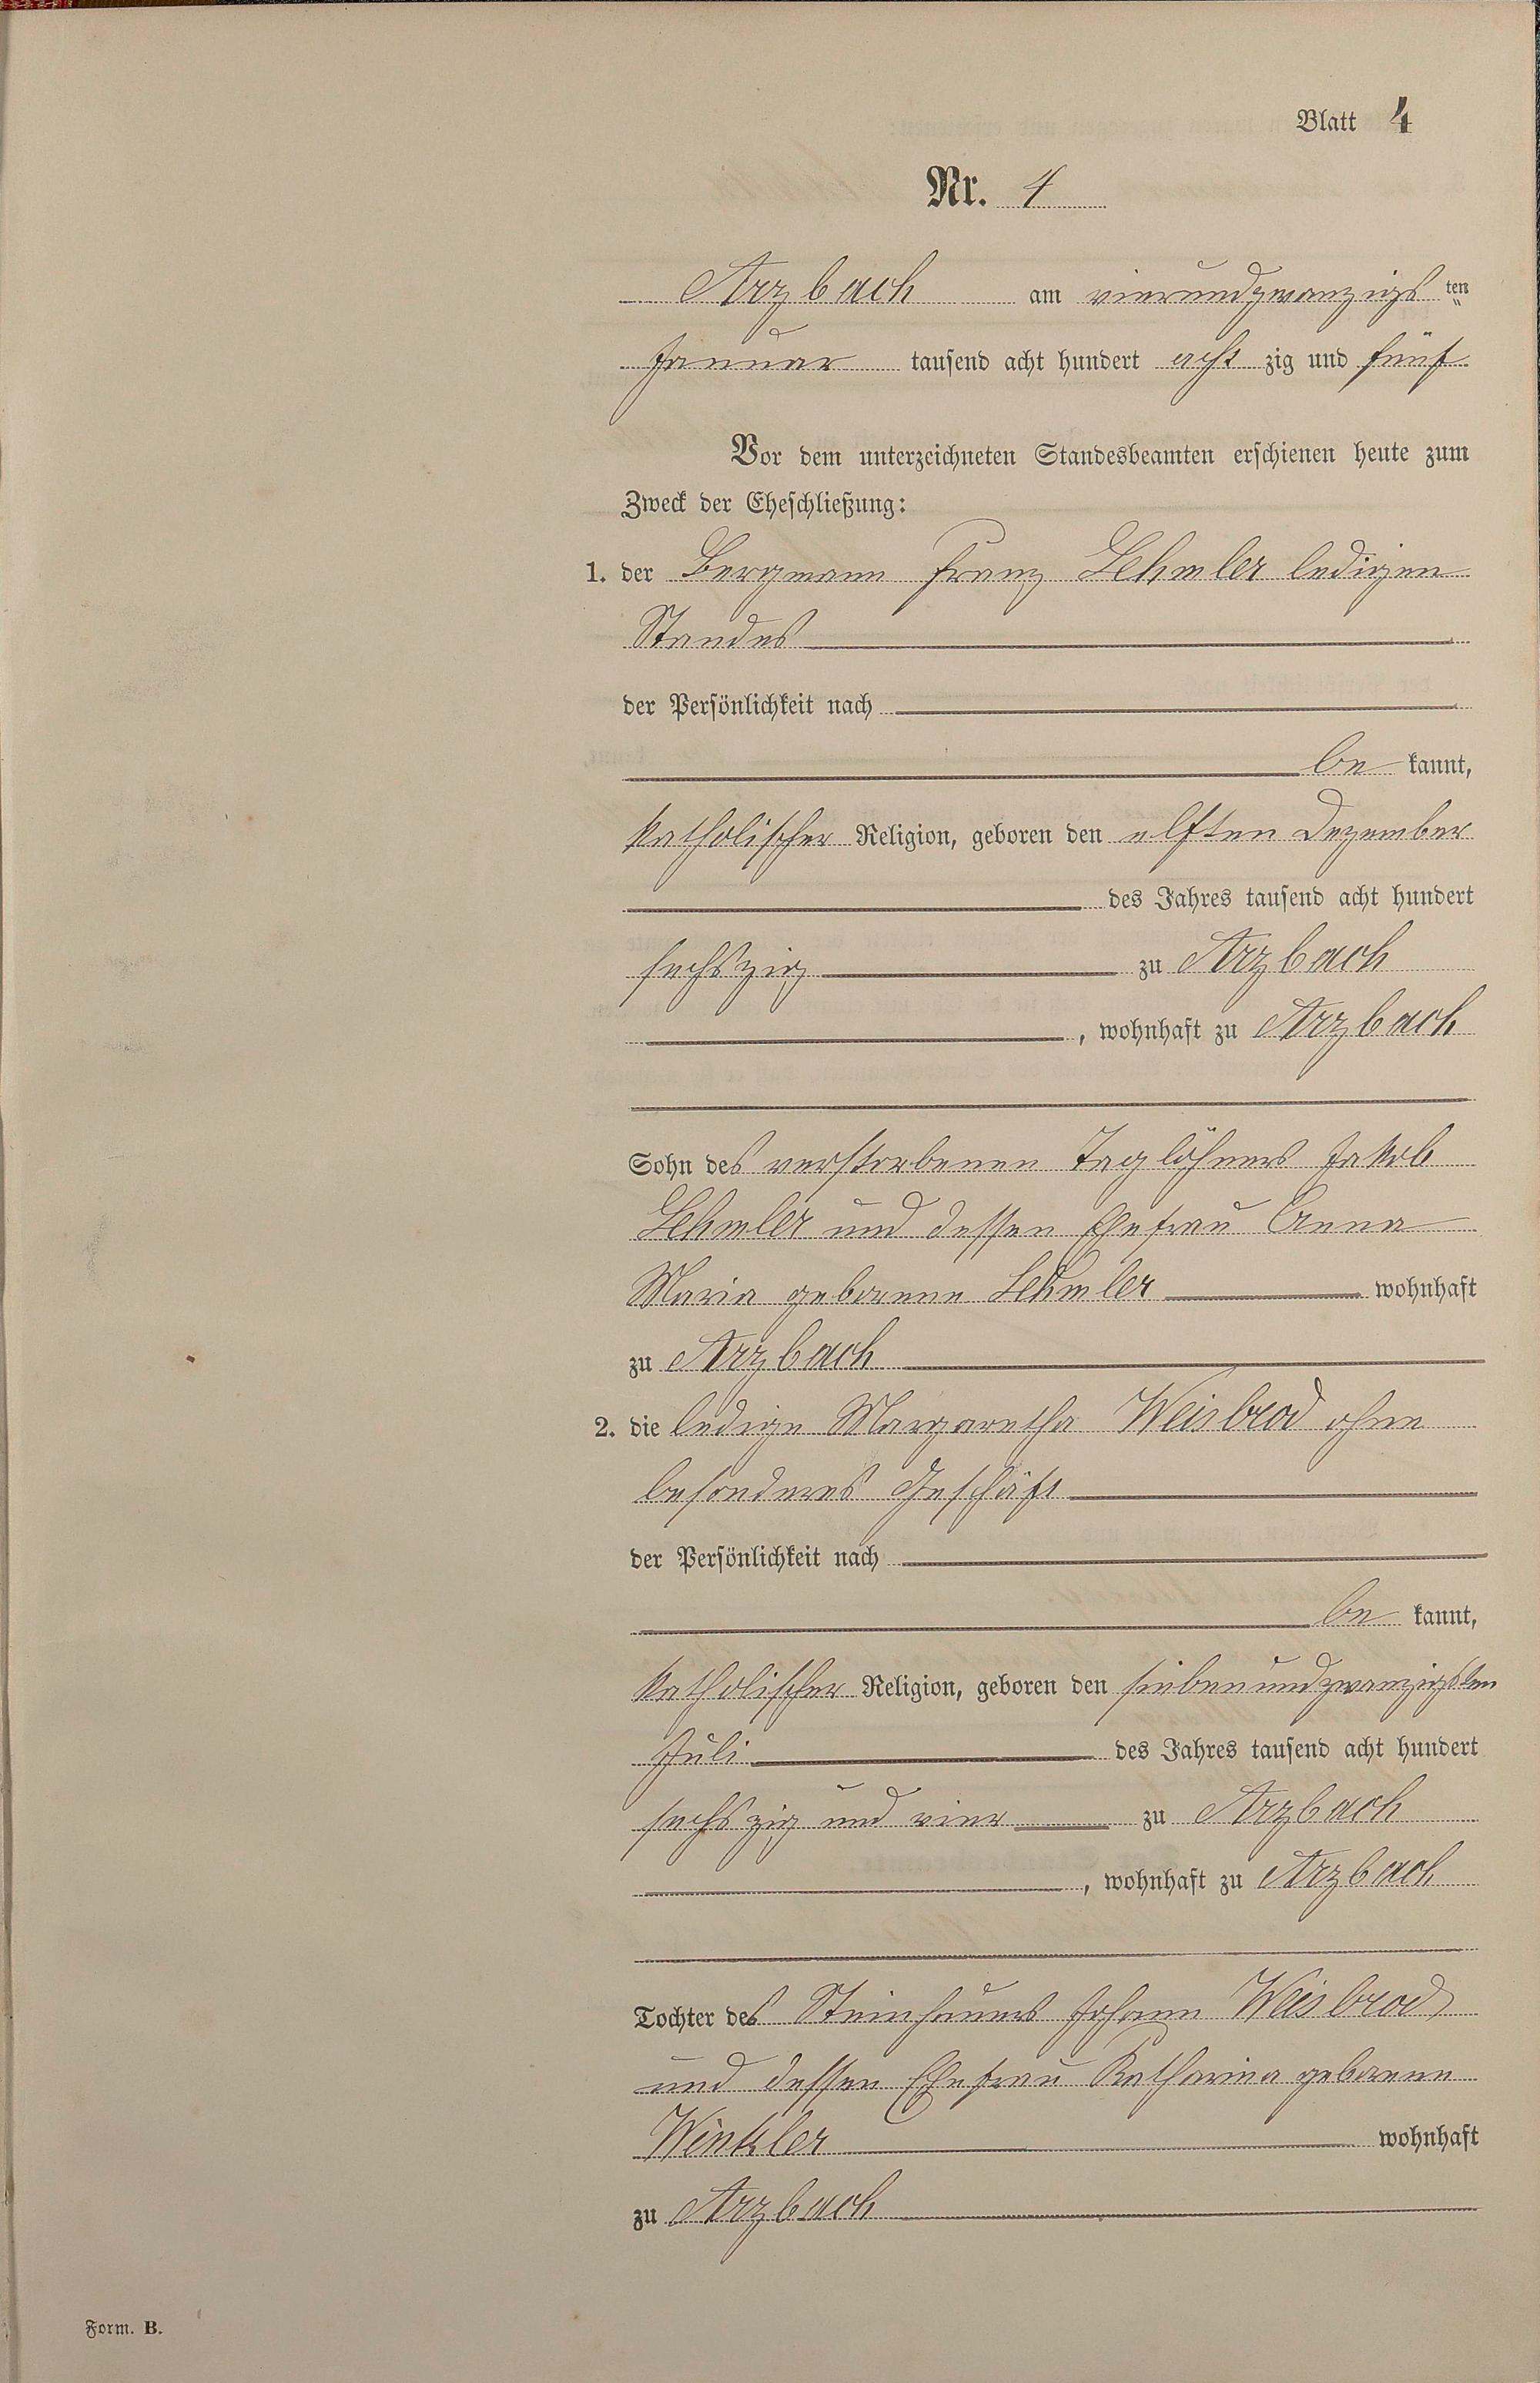 Blatt 4
Nr. 4
Arzbach am vierundzwanzigs ten
Januar tausend acht hundert acht zig und fünf
Vor dem unterzeichneten Standesbeamten erschienen heute zum
Zweck der Eheschließung:
1. der Bergmann Franz Lehmler ledigen
Standes
der Persönlichkeit nach
be kannt,
katholischer Religion, geboren den elften Dezember
des Jahres tausend acht hundert
sechszig zu Arzbach
, wohnhaft zu Arzbach
Sohn des verstorbenen Taglöhners Jakob
Lehmler und dessen Ehefrau Anna
Maria geborene Lehmler wohnhaft
zu Arzbach
2. die ledige Margaretha Weisbrod ohne
besonderes Geschäft
der Persönlichkeit nach
be kannt,
katholischer Religion, geboren den siebenundzwanzigsten
Juli des Jahres tausend acht hundert
sechszig und vier zu Arzbach
, wohnhaft zu Arzbach
Tochter des Steinhauers Johann Weisbrod
und dessen Ehefrau Katharina geborene
Winkler wohnhaft
zu Arzbach
Form. B.